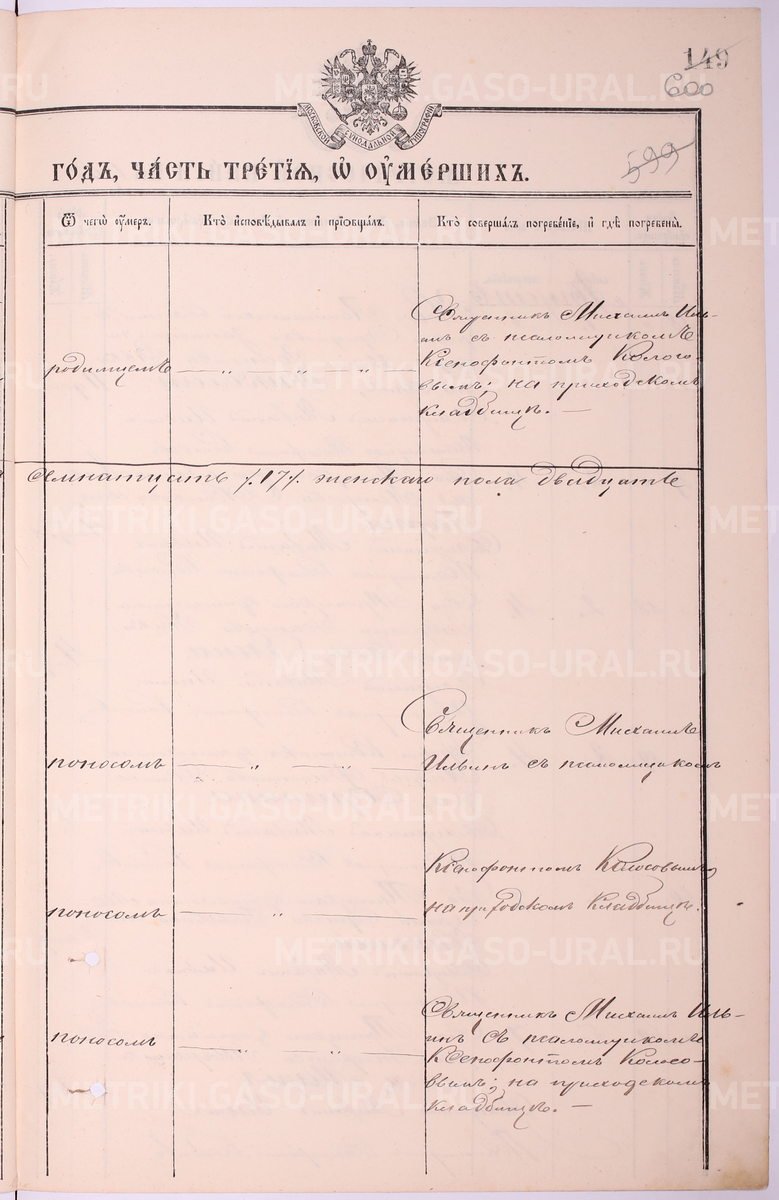 149
600
599
МОСКОВСКОЙ СѴНОДАЛЬНОЙ ТИПОГРАФІИ
ГО́ДЪ, ЧА́СТЬ ТРЕ́ТІѦ, Ѡ҆ ОУ҆МЕ́РШИХЪ.
Ѿ чегѡ̀ оу҆́меръ.
Кто̀ и҆сповѣ́дывалъ и҆ прїѡбща́лъ.
Кто̀ соверша́лъ погребе́нїе, и҆ гдѣ̀ погребены̀.
родимцемъ
Священникъ Михаилъ Иль-
инъ съ псаломщикомъ
Ксенофонтомъ Колосо
вымъ; на приходскомъ
кладбищѣ. —
семнатцать /.17/. женскаго пола двадцать
поносомъ
Священникъ Михаилъ
Ильинъ съ псаломщикомъ
поносомъ
Ксенофонтомъ Колосовымъ,
на приходскомъ кладбищѣ.
поносомъ
Священникъ Михаилъ Иль-
инъ съ псаломщикомъ
Ксенофонтомъ Колосо-
вымъ; на приходскомъ
кладбищѣ. —
METRIKI.GASO-URAL.RU